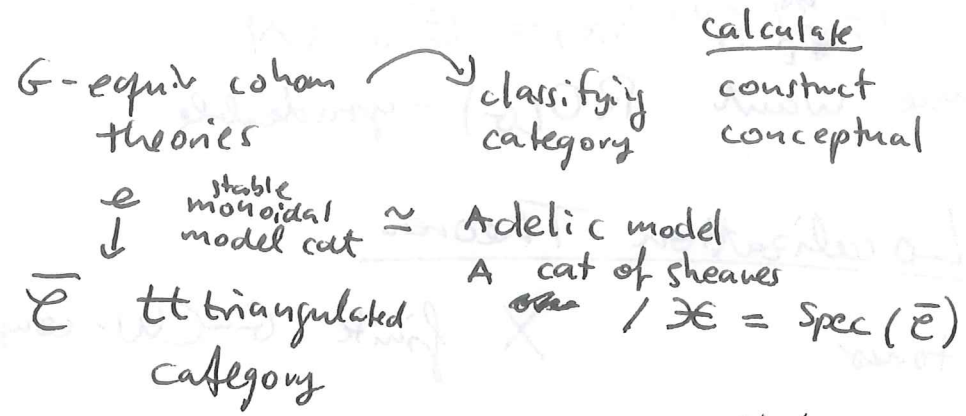 calculate
G-equiv cohom
theories
classifying
category
construct
conceptual
C stable monoidal model cat ≃ Adelic model
↓
A cat of sheaves
C̄ tt triangulated
category
/ X = Spec(C̄)